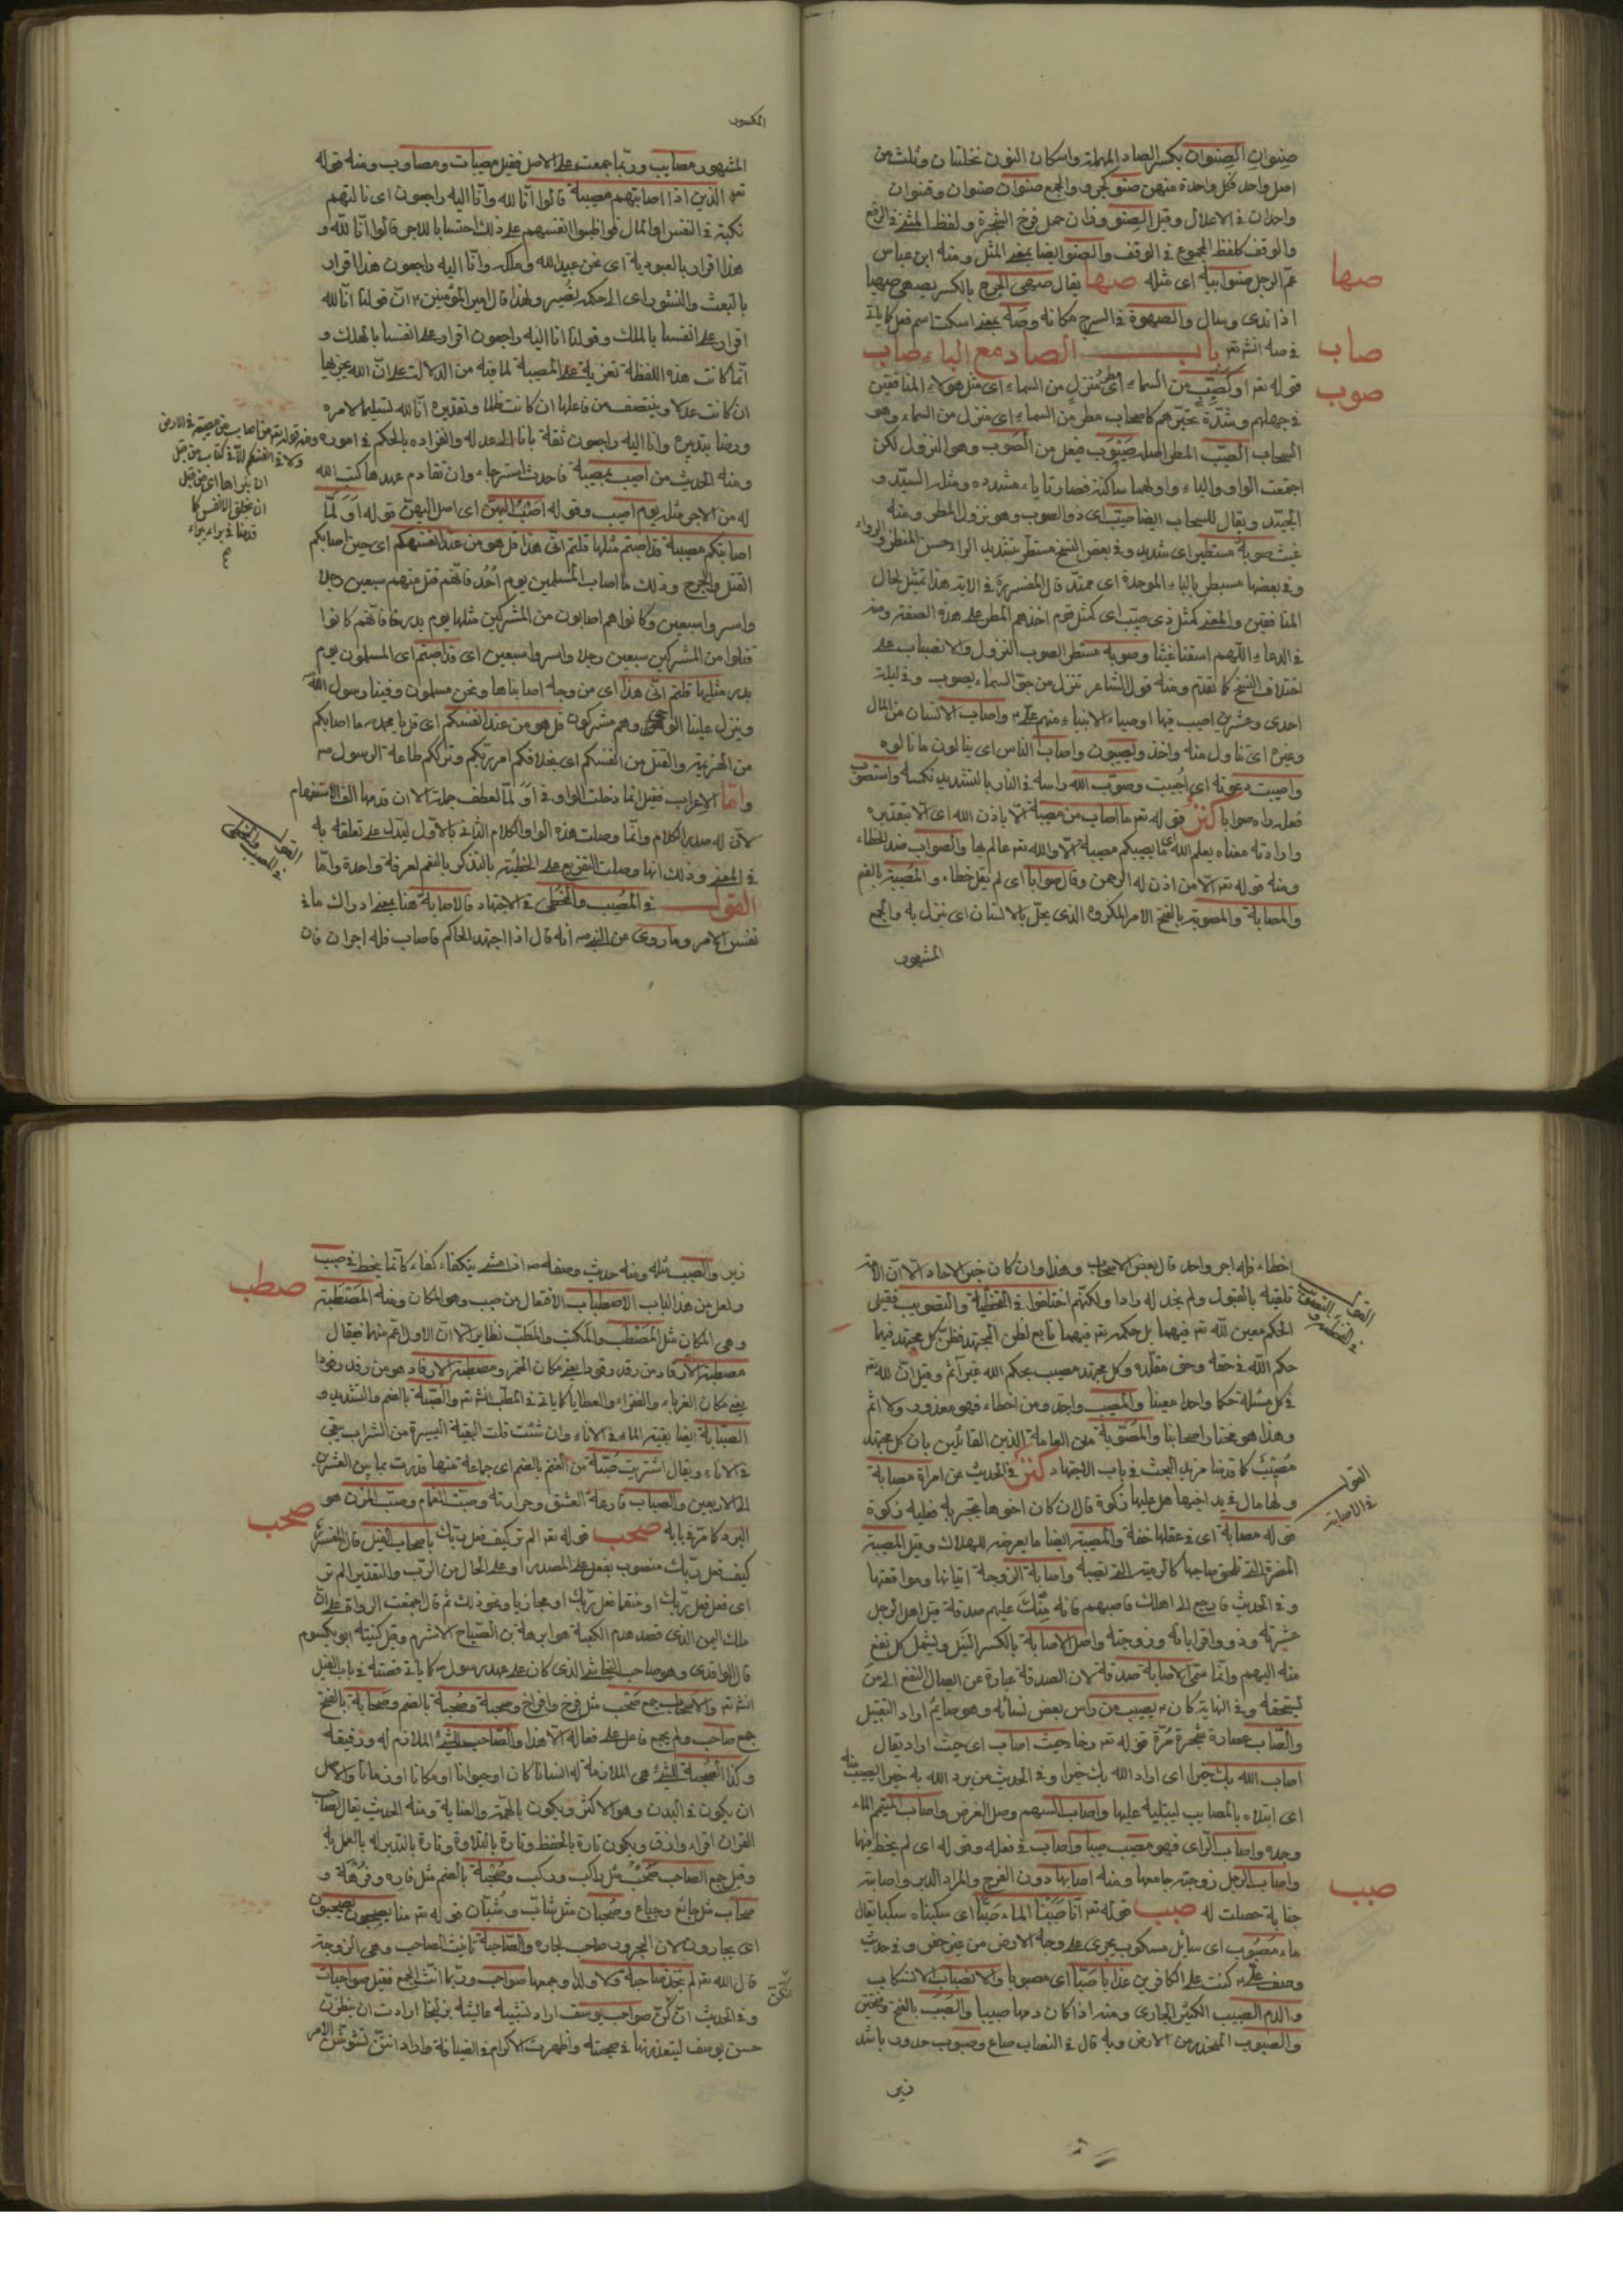 صنوان الصنوان بكسر الصاد المهملة واسكان النون نخلتان وثلث من
اصل واحد فكل واحدة منهن صنو كجرو والجمع صنوان صنوان وقنوان
واحدان في الاعلال وقيل الصنو وزان حمل فرخ الشجرة ولفظ المثنى في الرفع
والوقف كلفظ المجموع في الوقف والصنو ايضا بمعنى المثل ومنه ابن عباس
عم الرجل صنو ابيه اى مثله صها يقال صهى الجرح بالكسر يصهى صهيا
صها
اذا ندى وسال والصهوة في السرج مكانه وصه بمعنى اسكت اسم فعل كما ياتي
في صه انش تعـ باب الصاد مع الباء صاب
صاب
قوله تعـ او كصيب من السماء اى مطر منزل من السماء اى مثل هؤلاء المنافقين
صوب
في جهلهم وشدة تحيرهم كاصحاب مطر من السماء اى منزل من السماء وهو
السحاب الصيب المطر اصله صيوب فيعل من الصوب وهو النزول لكن
اجتمعت الواو والياء واولهما ساكنة فصارتا ياء مشدده ومثله السيد و
الجيد ويقال للسحاب ايضا صيب اى ذو الصوب وهو نزول المطر ومنه
غيث صوبه مستطير اى شديد وفي بعض النسخ مستطر بتشديد الراء حسن المنظر والرواء
وفي بعضها مسبطر بالباء الموحدة اى ممتد قال المفسر في الاية هذا تمثيل لحال
المنافقين والمعنى كمثل ذى صيب اى كمثل قوم اخذهم المطر على هذه الصفة ومنه
في الدعاء اللهم اسقنا غيثا وصوبه مستطر الصوب النزول والانصباب على
اختلاف النسخ كما تقدم ومنه قول الشاعر تنزل من جو السماء يصوب وفي ليلة
احدى وعشرين اصيب فيها اوصياء الانبياء منهم على واصاب الانسان من المال
وغيره اى تناول منه واخذ ويصيبون واصاب الناس اى ينالون ما نالوه
واصيبت دعوته اى اجيبت وصوب الله راسه في النار بالتشديد نكسه واستصوب
فعله راه صوابا كنز قوله تعـ ما اصاب من مصيبة الا باذن الله اى الا بتقديره
وارادته معناه بعلم الله اى ما يصيبكم مصيبة الا والله تعـ عالم بها والصواب ضد الخطاء
ومنه قوله تعـ الا من اذن له الرحمن وقال صوابا اى لم يقل خطاء والمصيبة بالضم
والمصابة والمصوبة بالفتح الامر المكروه الذى يحل بالانسان اى ينزل به والجمع
المشهور
المكسور
المشهور مصايب وربما جمعت على الاصل فقيل مصيبات ومصاوب ومنه قوله
تعـ الذين اذا اصابتهم مصيبة قالوا انا لله وانا اليه راجعون اى نالتهم
نكبة في النفس او المال فواظبوا انفسهم على ذلك احتسابا للاجر قالوا انا لله و
هذا اقرار بالعبودية اى نحن عبيد لله وملكه وانا اليه راجعون هذا اقرار
بالبعث والنشور اى الى حكمه نصير ولهذا قال امير المؤمنين ان قولنا انا لله
اقرار على انفسنا بالملك وقولنا انا اليه راجعون اقرار على انفسنا بالهلك و
انما كانت هذه اللفظة تعزية على المصيبة لما فيه من الدلالة على ان الله يجزيها
ان كانت عدلا وينتصف من فاعلها ان كانت ظلما وتقديره انا لله تسليما لامره
ورضا بتدبيره وانا اليه راجعون ثقة بانا الى عدله وانفراده بالحكم في اموره
ومنه الحديث من اصيب بمصيبة فاحدث استرجاء وان تقادم عهدها كتب الله
له من الاجر مثله يوم اصيب وقوله اصبت اليمين اى اصل اليمين قوله او لما
اصابتكم مصيبة قد اصبتم مثليها قلتم انى هذا قل هو من عند انفسكم اى حين اصابكم
القتل والجرح وذلك ما اصاب المسلمين يوم احد فانهم قتل منهم سبعين رجلا
واسروا سبعين وكانوا هم اصابون من المشركين مثليها يوم بدر فانهم كانوا
قتلوا من المشركين سبعين رجلا واسروا سبعين اى قد اصبتم اى المسلمون يوم
بدر مثليها قلتم انى هذا اى من وجه اصابنا هذا ونحن مسلمون وفينا رسول الله
وينزل علينا الوحى وهم مشركون قل هو من عند انفسكم اى قل يا محمد ما اصابكم
من الهزيمة والقتل من انفسكم اى بخلافكم امر ربكم وترككم طاعة الرسول
واما الاعراب فقيل انما دخلت الواو في او لما لعطف جملة الا ان قدمها الف الاستفهام
لان له صدر الكلام وانما وصلت هذه الواو الكلام الثاني بالاول ليدل على تعلقه به
في المعنى وذلك انها وصلت التقريع على الخطيئة بالتذكر بالنعم لعرفة واحدة واما
القول في المصيب والمخطى في الاجتهاد فالاصابة هنا بمعنى ادراك ما في
نفس الامر وما روى عن النبى انه قال اذا اجتهد الحاكم فاصاب فله اجران فان
ومنه قوله تعـ ما اصاب من مصيبة في الارض
ولا في انفسكم الا في كتاب من قبل
ان نبراها اى من قبل
ان نخلق الانفس كما
قدمنا في براء براء
القول في المصيب والمخطى
اخطاء فله اجر واحد قال بعض الاصحاب وهذا وان كان خبر الاحاد الا ان الامة
تلقيه بالقبول ولم نجد له رادا ولكنهم اختلفوا في التخطية والتصويب فقيل
القول في التخطية والتصويب
الحكم معين لله تعـ فيهما بل حكمه تعـ فيهما تابع لظن المجتهد فظن كل مجتهد فيها
حكم الله في حقه وحق مقلده وكل مجتهد مصيب بحكم الله غير آثم وقيل ان لله تعـ
في كل مسئلة حكما واحدا معينا والمصيب واحد ومن اخطاء فهو معذور ولا اثم
وهذا هو مختار اصحابنا والمصوبة من العامة الذين القائلين بان كل مجتهد
مصيب كما قدمنا مزيد البحث في باب الاجتهاد كنز في الحديث عن امراة مصابة
ولها مال في يد اخيها هل عليها زكوة قال ان كان اخوها يتجر به فعليه زكوة
القول في الاصابة
قوله مصابة اى في عقلها خفة والمصيبة ايضا ما يعرض للهلاك وقيل المصيبة
المضرة التي تلحق صاحبها كالرمية التي تصيبه واصابة الزوجة اتيانها ومواقعتها
وفي الحديث فارجع الى اهلك فاصبهم فانه منك عليهم صدقة قيل اهل الرجل
عشيرته وذوو اقرابائه وزوجته واصل الاصابة بالكسر النيل ويشمل كل نفع
منه اليهم وانما سمى الاصابة صدقة لان الصدقة عبارة عن ايصال النفع الى من
يستحقه وفي النهاية كان يصيب من راس بعض نسائه وهو صايم اراد التقبيل
والصاب عصارة شجرة مرة قوله تعـ رخاء حيث اصاب اى حيث اراد يقال
اصاب الله بك خيرا اى اراد الله بك خيرا وفي الحديث من يرد الله به خيرا يصيب منه
اى ابتلاه بالمصايب ليثيبه عليها واصاب السهم وصل الغرض واصاب المتيمم الماء
وجده واصاب الراى فهو مصيب صيبا واصاب في فعله وقوله اى لم يخط فيها
واصاب الرجل زوجته جامعها ومنه اصابها دون الفرج والمراد الدبر واصابته
جنابة حصلت له صبب قوله تعـ انا صببنا الماء صبا اى سكبناه سكبا يقال
صبب
ماء مصبوب اى سايل مسكوب يجرى على وجه الارض من غير حفر وفي حديث
وصف على كنت على الكافرين عذابا صبا اى مصبوبا والانصباب الانسكاب
والدم الصبيب الكثير الجارى ومنه اذا كان دمها صبيبا والصبب بالفتح وفتحتين
والصبوب المنحدر من الارض وبه قال في النصاب صاع وصبوب حدور باشد
زير
زير والصبب مثله ومنه حديث وصفه اذا مشى يتكفاء تكفاء كانما ينحط في صبب
ولعل من هذا الباب الاصطباب الافتعال من صبب وهو المكان ومنه المصطبة
صطب
وهي المكان مثل المصطب والمكتب والمطب نظاير الا ان الاول اعم منهما فيقال
مصطبة الارقاد من رقد رقودا يعنى مكان الخمر ومصطبة الارفاد هو من رفد رفودا
يعنى مكان الغرباء والفقراء والعطايا كما ياتي في المطب انش تعـ والصبة بالضم والتشديد و
الصبابة ايضا بقية الماء في الاناء وان شئت قلت البقية اليسيرة من الشراب يبقى
في الاناء ويقال اشتريت صبة من الغنم بالضم اى جماعة منها قدرت بما بين العشرة
الى الاربعين والصباب قارعة العشق وحرارته وصبت الغمام وصبت المزن هو
البرد كما مر في بابه صحب قوله تعـ الم تر كيف فعل ربك باصحاب الفيل قال المفسر
صحب
كيف فعل ربك منصوب بفعل على المصدر او على الحال من الرب والتقدير الم تر
اى فعل فعل ربك او منتقما فعل ربك او مجازيا ونحو ذلك ثم قال اجمعت الرواة على ان
ملك اليمن الذى قصد هدم الكعبة هو ابرهة بن الصباح الاشرم وقيل كنيته ابو يكسوم
قال الواقدى وهو صاحب النجاشى الذى كان على عهد رسول كما ياتي قصته في باب الفيل
انش تعـ والاصحاب جمع صحب مثل فرخ وافراخ وصحبة وصحبة بالضم وصحابة بالفتح
جمع صاحب ولم يجمع فاعل على فعاله الا هذا والصاحب للشئ الملازم له ورفيقه
وكذا الصحبة للشئ هي الملازمة له انسانا كان او حيوانا او مكانا او زمانا والاصل
ان يكون في البدن وهو الاكثر ويكون بالهمة والعناية ومنه الحديث يقال لصاحب
القران اقراء وارق ويكون تارة بالحفظ وتارة بالتلاوة وتارة بالتدبر له بالعمل به
وقيل جمع الصاحب صحب مثل راكب وركب وصحبة بالضم مثل فاره وفرهة و
صحاب مثل جائع وجياع وصحبان مثل شاب وشبان قوله تعـ منا يصحبون
اى يجارون لان المجرور صاحب لجاره والصاحبة تانيث الصاحب وهي الزوجة
قال الله تعـ لم يتخذ صاحبة ولا ولدا وجمعها صواحب وربما انث الجمع فقيل صواحبات
وفي الحديث ان كن صواحب يوسف اراد تشبيه عائشه بزليخا ارادت ان ينظرن
حسن يوسف ليتعذرنها في محبته واظهرت الاكرام في الضيافة واراد انتن تشوشن الامر